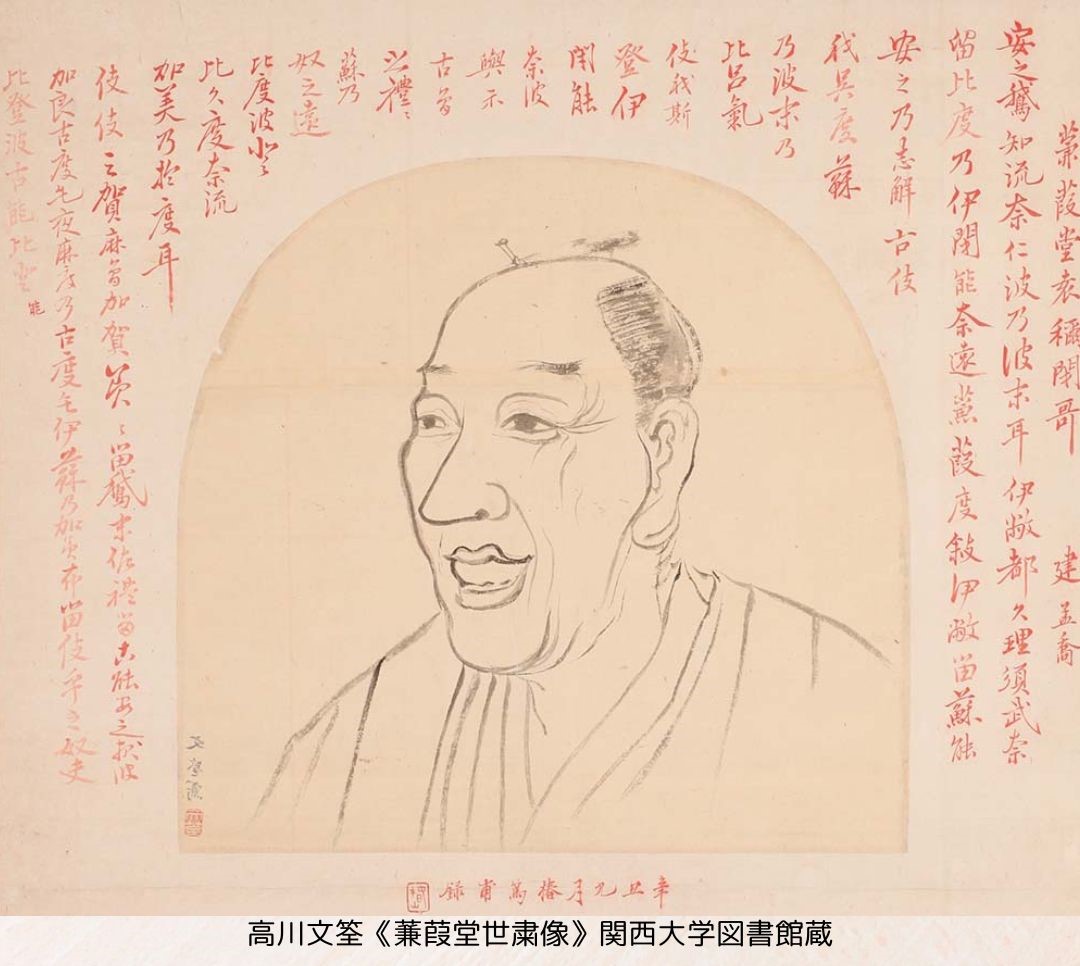 蒹葭堂 閇哥 建孟喬
安之鵝知流奈仁波乃波末耳伊敝都久理須武奈
留比度乃伊閇能奈遠蒹葭度敍伊敝留蘇能
安之乃志解古伎
度蘇
乃波末乃
比呂氣
伎我斯
登伊
閇能
奈波
與示
古曽
禮々
蘇乃
奴之遠
比度波
比久度奈流
加美乃於度耳
伎伎之賀麻曽加賀 留鵝末佐禮留 能安之
加良古度毛夜麻度乃古度毛伊蘇乃加美布留伎乎之奴夫
比登波古能比登能
文筌寫
辛丑九月椿 甫録
高川文筌《蒹葭堂世粛像》関西大学図書館蔵